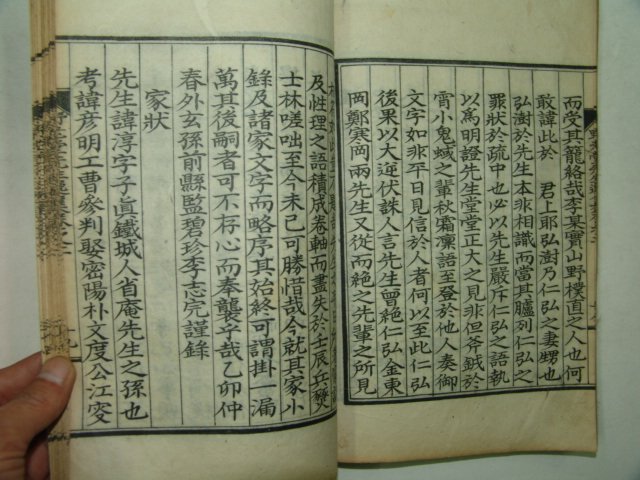 而受其籠絡哉李某實山野樸直之人也何
敢諱此於 君上耶弘澍乃仁弘之妻甥也
弘澍於先生本非相識而當其臚列仁弘之
罪狀於疏中也必以先生嚴斥仁弘之語執
以爲明證先生堂堂正大之見非但斧鉞於
宵小鬼蜮之輩秋霜凜語至登於他人奏御
文字如非平日見信於人者何以至此仁弘
後果以大逆伏誅人言先生曾絶仁弘金東
岡鄭寒岡兩先生又從而絶之先輩之所見
及性理之語積成卷軸而盡失於壬辰兵燹
士林嗟咄至今未已可勝惜哉今就其家小
錄及諸家文字而略序其始終可謂掛一漏
萬其後嗣者可不存心而奉襲乎哉乙卯仲
春外玄孫前縣監碧珍李志完謹錄
家狀
先生諱淳字子眞鐵城人省庵先生之孫也
考諱彦明工曹參判娶密陽朴文度公江